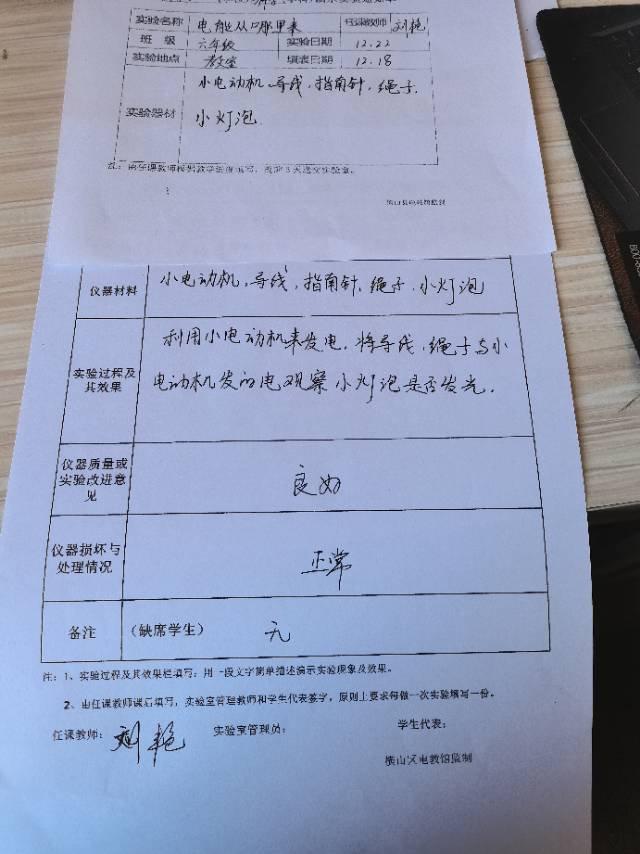 实验名称 电能从哪里来 任课教师 刘艳
班 级 六年级 实验日期 12.22
实验地点 教室 填表日期 12.18
实验器材 小电动机、导线，指南针，绳子.
小灯泡.
注：由任课教师根据教学进度填写，提前3天送交实验室。
横山县电教馆监制
仪器材料 小电动机，导线，指南针，绳子，小灯泡
实验过程及其效果 利用小电动机来发电，将导线，绳子与小
电动机发的电观察小灯泡是否发光.
仪器质量或实验改进意见 良好
仪器损坏与处理情况 正常
备注 （缺席学生） 无
注：1、实验过程及其效果栏填写：用一段文字简单描述演示实验现象及效果。
2、由任课教师课后填写，实验室管理教师和学生代表签字，原则上要求每做一次实验填写一份。
任课教师：刘艳 实验室管理员： 学生代表：
横山区电教馆监制